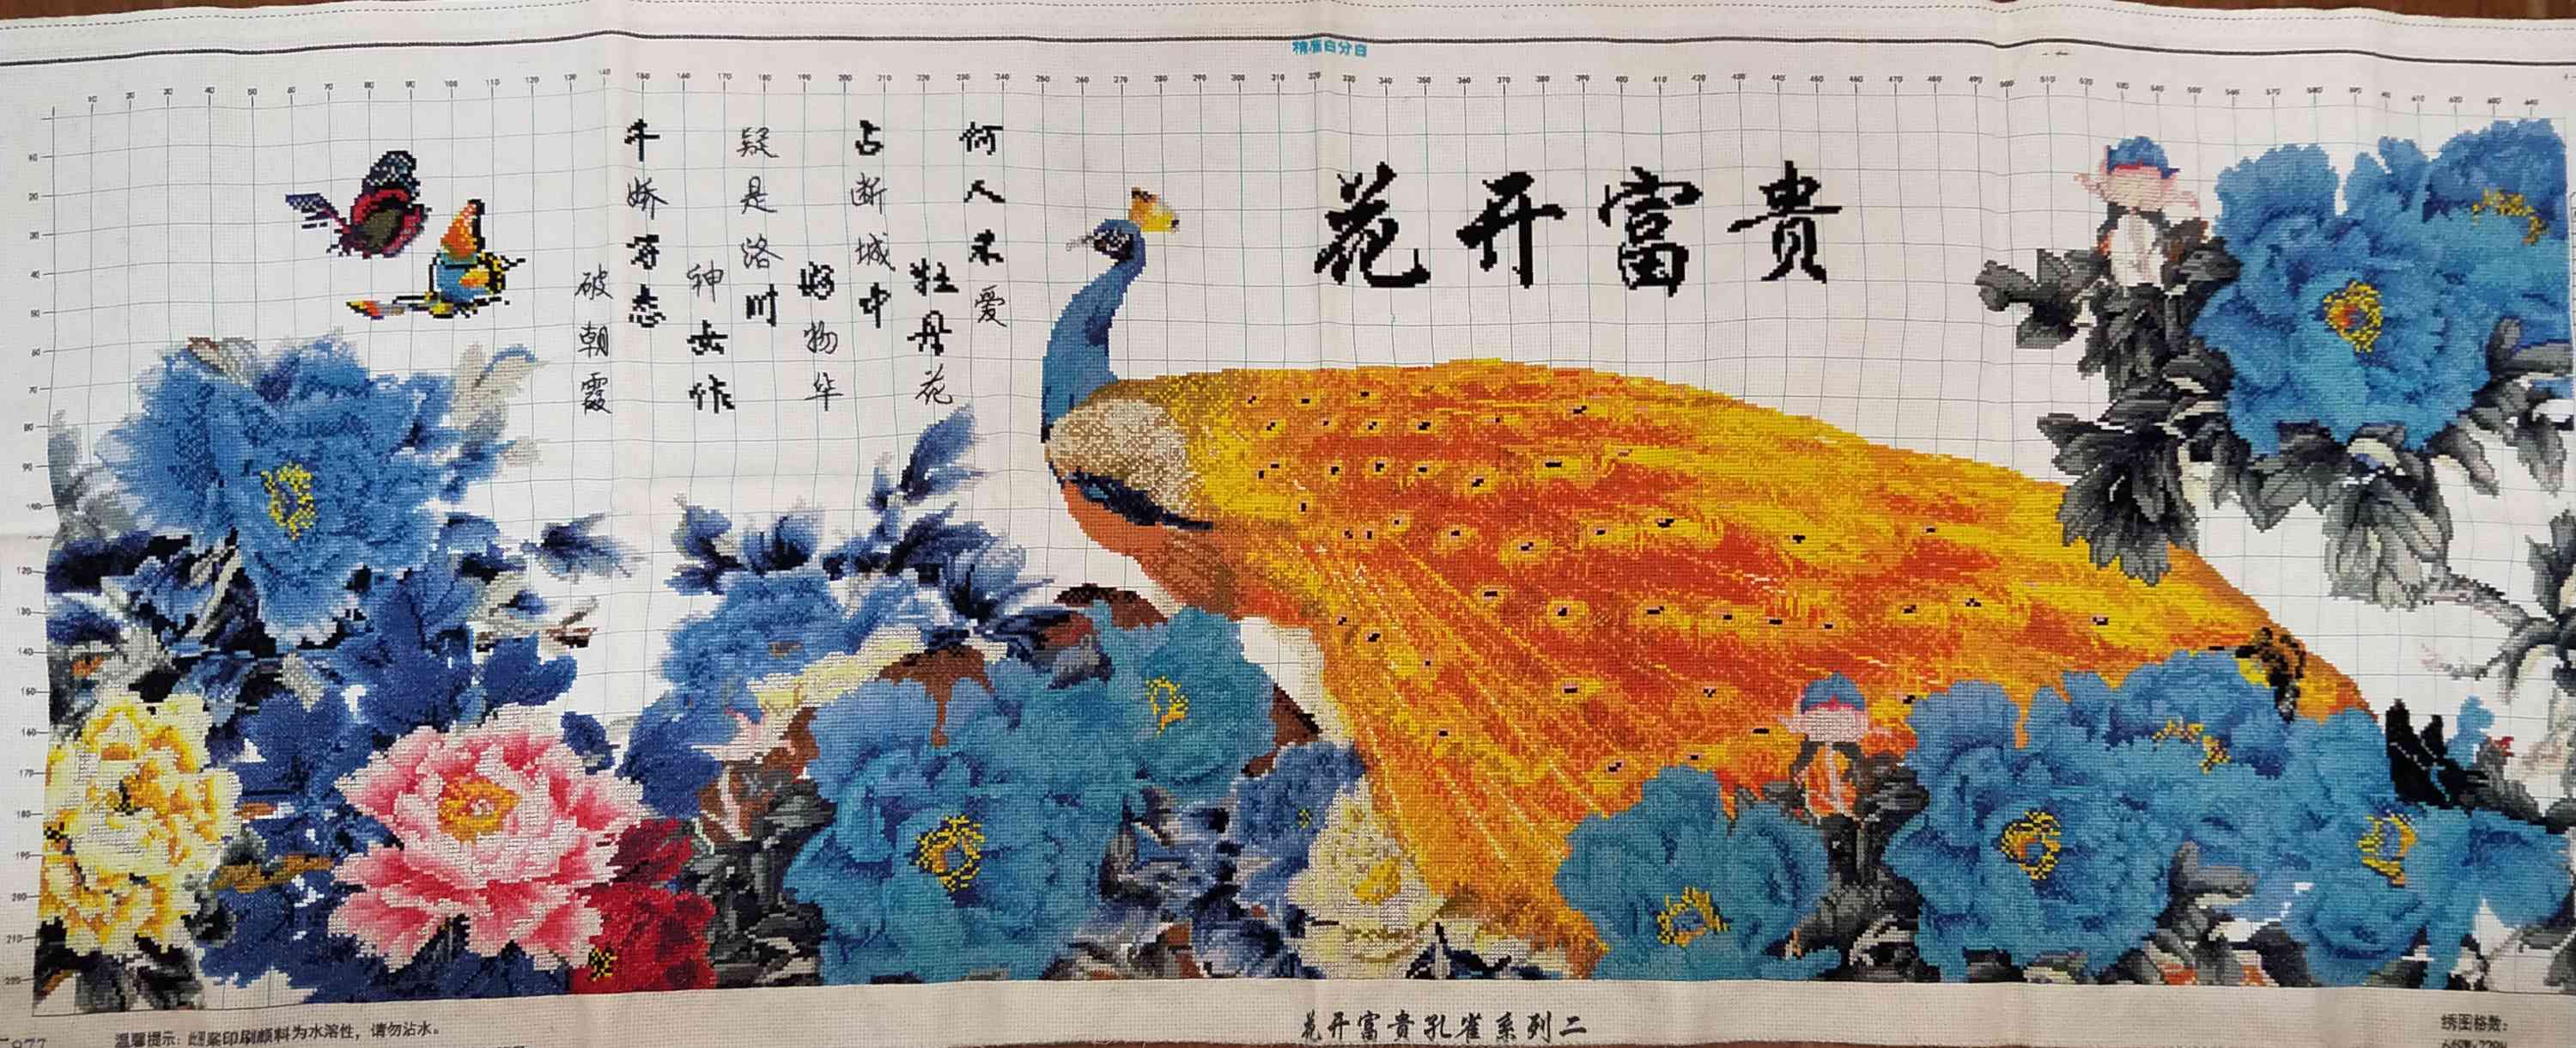 精准百分百
花开富贵
何人不爱
牡丹花
占断城中
好物华
疑是洛川
神女作
千娇万态
破朝霞
温馨提示：此图案印刷颜料为水溶性，请勿沾水。
花开富贵孔雀系列二
绣图格数：